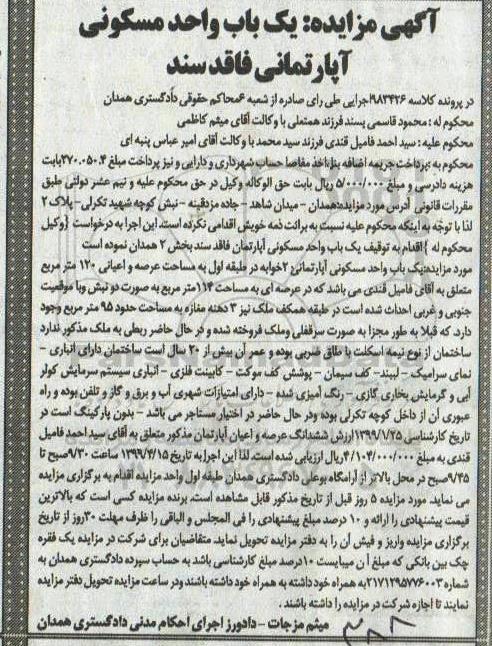 آگهی مزایده: یک باب واحد مسکونی
آپارتمانی فاقد سند
در پرونده کلاسه ۹۸۳۴۲۶اجرایی طی رای صادره از شعبه ۶محاکم حقوقی دادگستری همدان
محکوم له : محمود قاسمی پسند فرزند همتعلی با وکالت آقای میثم کاظمی
محکوم علیه : سید احمد فامیل قندی فرزند سید محمد با وکالت آقای امیر عباس پنبه ای
محکوم به :پرداخت جریمه اضافه بنا،اخذ مفاصا حساب شهرداری و دارایی و نیز پرداخت مبلغ ۳۷۰.۰۵۰.۴بابت
هزینه دادرسی و مبلغ ۵/۰۰۰/۰۰۰ ریال بابت حق الوکاله وکیل در حق محکوم علیه و نیم عشر دولتی طبق
مقررات قانونی آدرس مورد مزایده:همدان - میدان شاهد - جاده مزدقینه - نبش کوچه شهید تکرلی- پلاک ۲
لذا با توجه به اینکه محکوم علیه نسبت به برائت ذمه خویش اقدامی نکرده است. این اجرا به درخواست {وکیل
محکوم له } اقدام به توقیف یک باب واحد مسکونی آپارتمان فاقد سند بخش ۲ همدان نموده است
مورد مزایده:یک باب واحد مسکونی آپارتمانی۲ خوابه در طبقه اول به مساحت عرصه و اعیانی ۱۲۰ متر مربع
متعلق به آقای فامیل قندی می باشد که در عرصه ای به مساحت ۱۱۴متر مربع به صورت دو نبش وبا موقعیت
جنوبی و غربی احداث شده است در طبقه همکف ملک نیز ۳ دهنه مغازه به مساحت حدود ۹۵ متر مربع وجود
دارد. که قبلا به طور مجزا به صورت سرقفلی وملک فروخته شده و در حال حاضر ربطی به ملک مذکور ندارد
ساختمان از نوع نیمه اسکلت با طاق ضربی بوده و عمر آن بیش از ۲۰ سال است ساختمان دارای انباری -
نمای سرامیک - لیبند- کف سیمان - پوشش کف موکت - کابینت فلزی - انباری سیستم سرمایش کولر
آبی و گرمایش بخاری گازی - رنگ آمیزی شده - دارای امتیازات شهری آب و برق و گاز و تلفن بوده و راه
عبوری آن از داخل کوچه تکرلی بوده ودر حال حاضر در اختیار مستاجر می باشد - بدون پارکینگ است در
تاریخ کارشناسی ۱۳۹۹/۱/۲۵ ارزش ششدانگ عرصه و اعیان آپارتمان مذکور متعلق به آقای سید احمد فامیل
قندی به مبلغ ۴/۱۰۴/۰۰۰/۰۰۰ریال ارزیابی شده است. لذا این اجرا،به تاریخ ۱۳۹۹/۴/۱۵ ساعت ۹/۳۰صبح تا
۹/۴۵صبح در محل بالاتر از آرامگاه بوعلی دادگستری همدان طبقه اول واحد مزایده اقدام به برگزاری مزایده
می نماید. مورد مزایده ۵ روز قبل از تاریخ مذکور قابل مشاهده است. برنده مزایده کسی است که بالاترین
قیمت پیشنهادی را ارائه و ۱۰ درصد مبلغ پیشنهادی را فی المجلس و الباقی را ظرف مهلت ۳۰روز از تاریخ
برگزاری مزایده واریز و فیش آن را به دفتر مزایده تحویل نماید. متقاضیان برای شرکت در مزایده یک فقره
چک بین بانکی که مبلغ آن میبایست ۱۰درصد مبلغ کارشناسی باشد به حساب سپرده دادگستری همدان به
شماره ۲۱۷۱۲۹۵۷۷۶۰۰۳به همراه خود داشته به همراه خود داشته باشند ودر ساعت مزایده تحویل دفتر مزایده
نمایند تا اجازه شرکت در مزایده را داشته باشند .
میثم مزجات - دادورز اجرای احکام مدنی دادگستری همدان